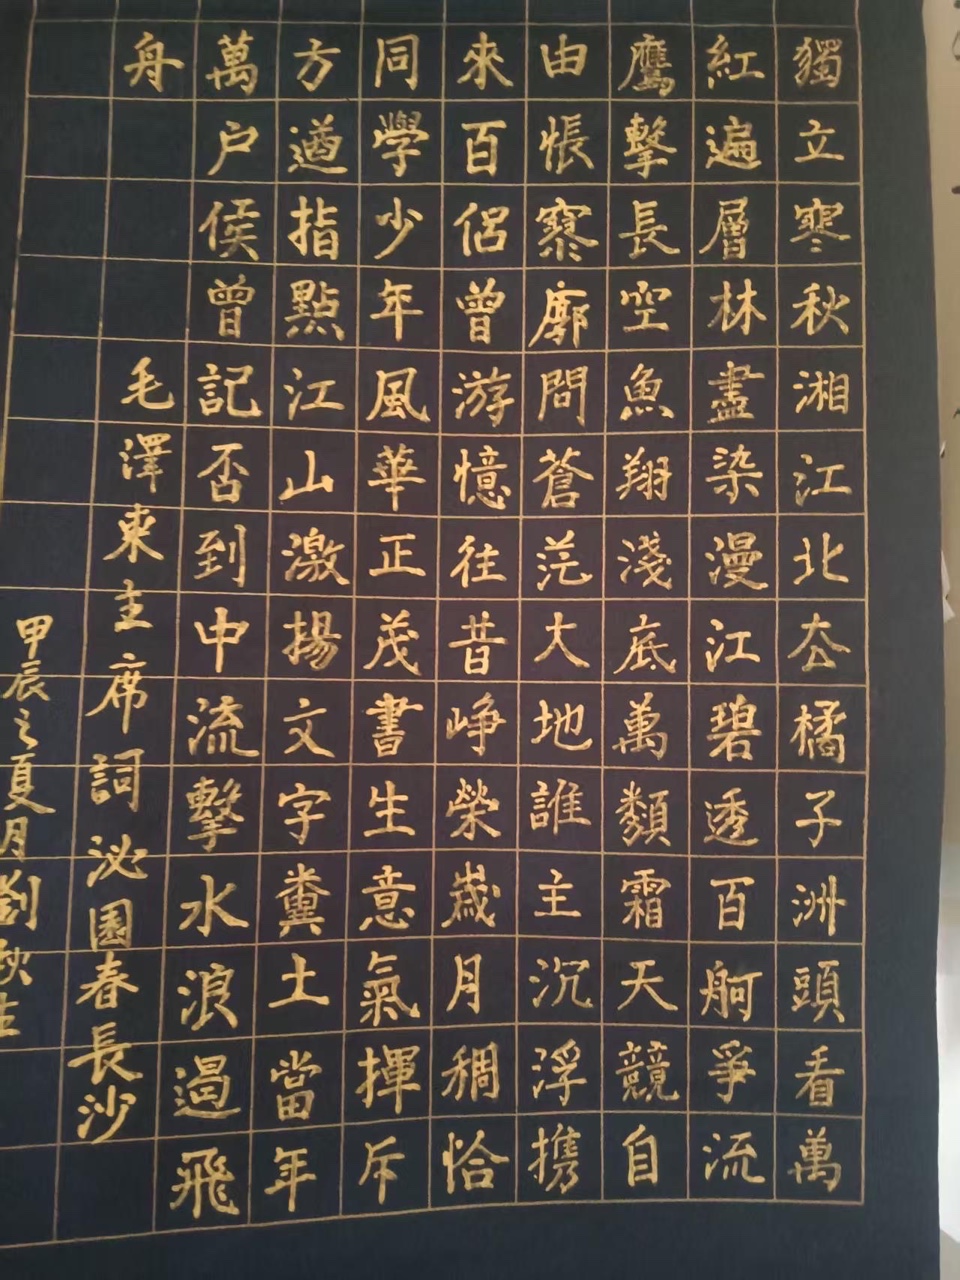 獨立寒秋湘江北去橘子洲頭看萬
紅遍層林盡染漫江碧透百舸爭流
鷹擊長空魚翔淺底萬類霜天競自
由悵寥廓問蒼茫大地誰主沉浮携
來百侶曾游憶往昔崢榮歲月稠恰
同學少年風華正茂書生意氣揮斥
方遒指點江山激揚文字糞土當年
萬户侯曾記否到中流擊水浪遏飛
舟 毛澤東主席詞沁園春長沙
甲辰之夏月劉秋生